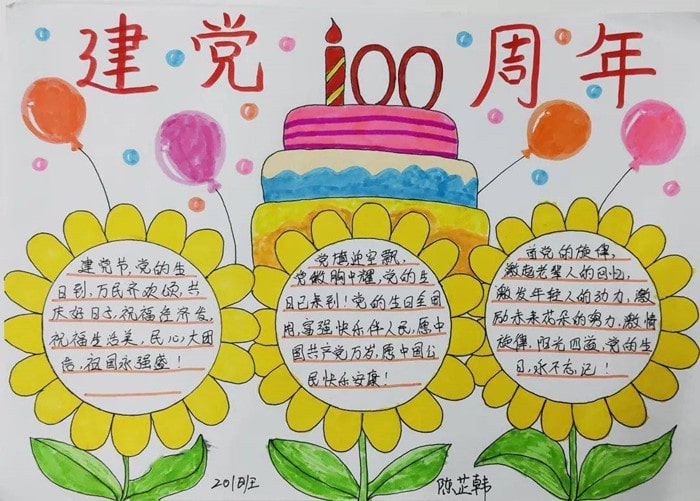 建党100周年
建党节,党的生
日到,万民齐欢颂,共
庆好日子,祝福经济发,
祝福生活美,民心大团
结,祖国永强盛!
党旗迎空飘,
党徽胸中耀,党的生
日已来到!党的生日全国
闹,富强快乐伴人民,愿中
国共产党万岁,愿中国公
民快乐安康!
首党的旋律,
激起老辈人的回忆,
激发年轻人的动力,激
励未来花朵的努力,激情
旋律,阳光四溢,党的生
日,永不忘记!
2018班
陈芷韩